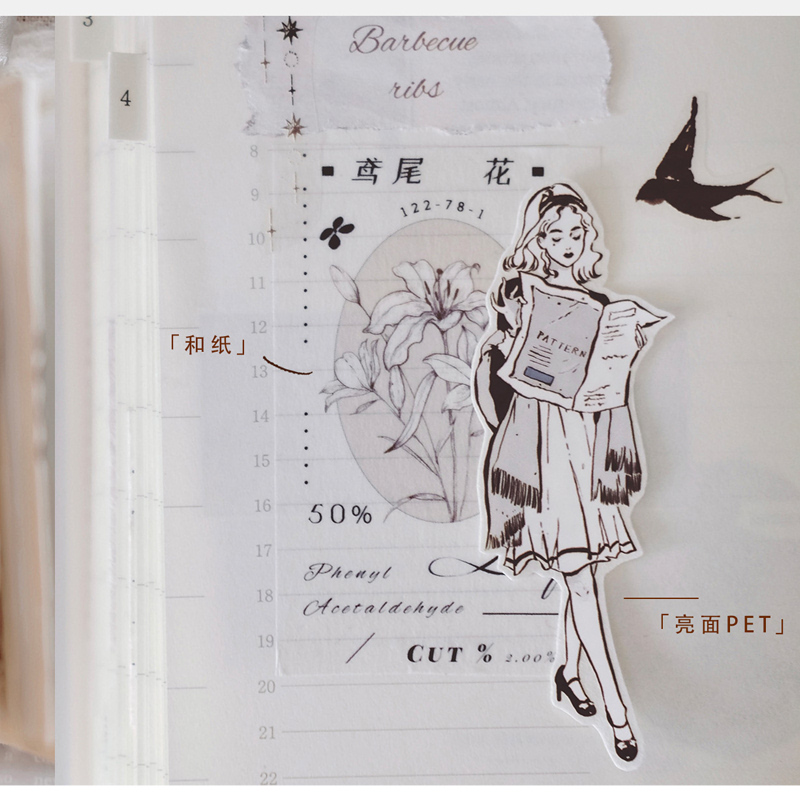 3
4
Barbecue
ribs
8
鸢尾 花
9
122-78-1
10
11
12
「和纸」
PATTERN
13
14
15
16
50%
17
Phenyl
18
Acetaldehyde
「亮面PET」
19
CUT % 2.00%
20
21
22